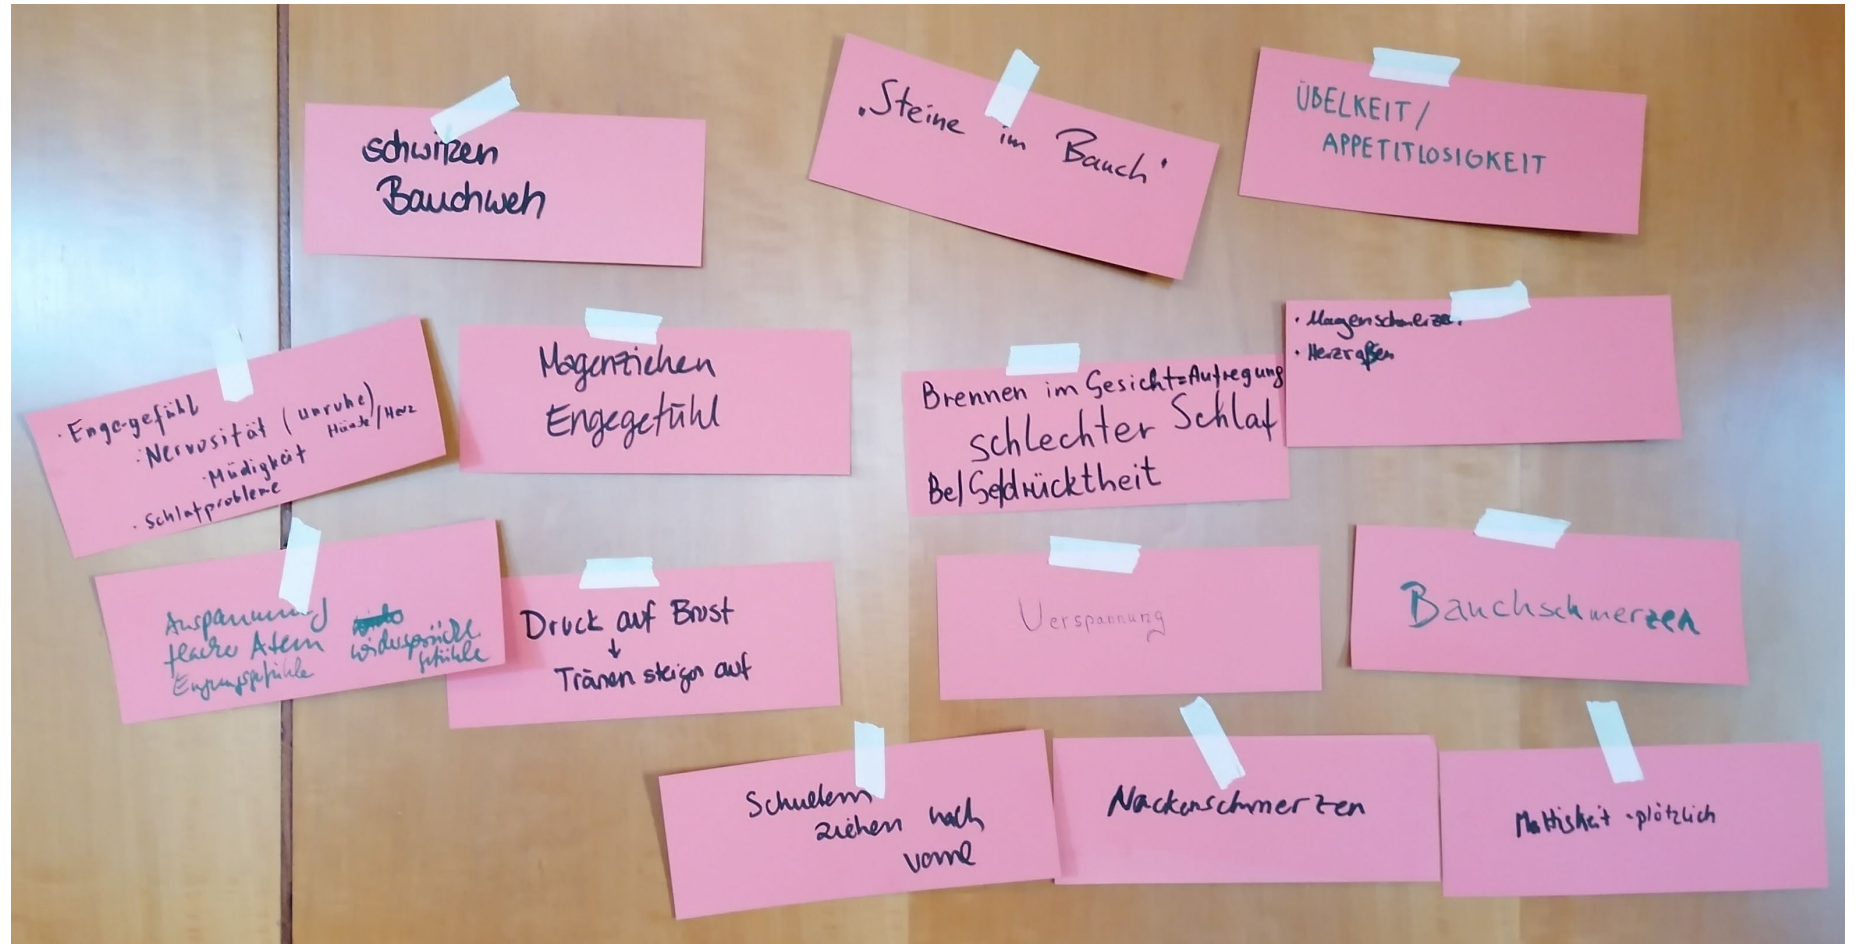 schwitzen
Bauchweh
"Steine im Bauch"
ÜBELKEIT/
APPETITLOSIGKEIT
· Engegefühl
· Nervosität (Unruhe)
Hände/Herz
· Müdigkeit
· Schlafprobleme
Magenziehen
Engegefühl
Brennen im Gesicht=Aufregung
schlechter Schlaf
Be/Gedrücktheit
· Magenschmerzen
· Herzraßen
Anspannung
flacher Atem
Engungsgefühle
widersprüchl
gefühle
Druck auf Brust
↓
Tränen steigen auf
Verspannung
Bauchschmerzen
Schultern
ziehen nach
vorne
Nackenschmerzen
Mattigkeit - plötzlich